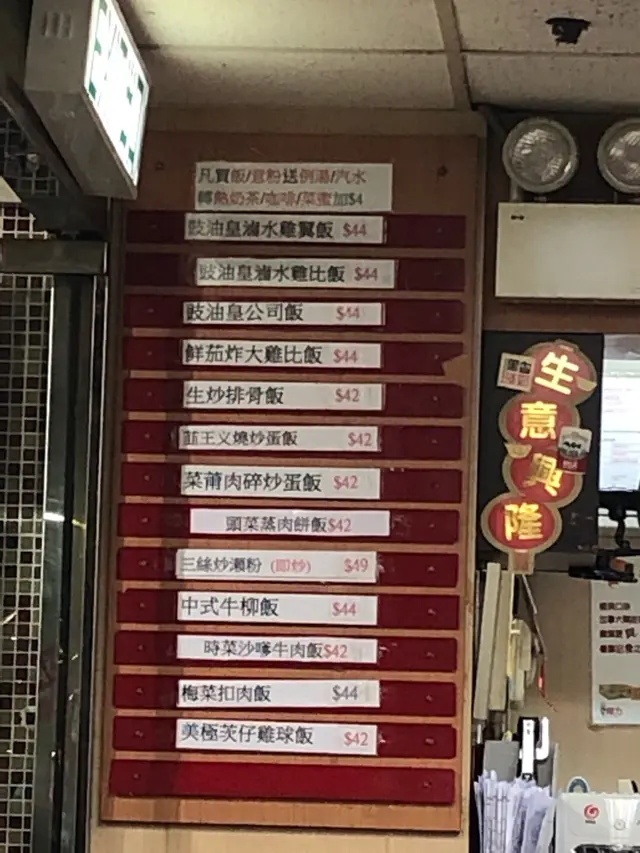 凡買飯/意粉送例湯/汽水
轉熱奶茶/咖啡/菜蜜加$4
豉油皇滷水雞翼飯 $44
豉油皇滷水雞比飯 $44
豉油皇公司飯 $44
鮮茄炸大雞比飯 $44
生炒排骨飯 $42
韮王义燒炒蛋飯 $42
菜甫肉碎炒蛋飯 $42
頭菜蒸肉餅飯$42
三絲炒瀨粉 (即炒) $49
中式牛柳飯 $44
時菜沙嗲牛肉飯$42
梅菜扣肉飯 $44
美極茨仔雞球飯 $42
生
意
興
隆